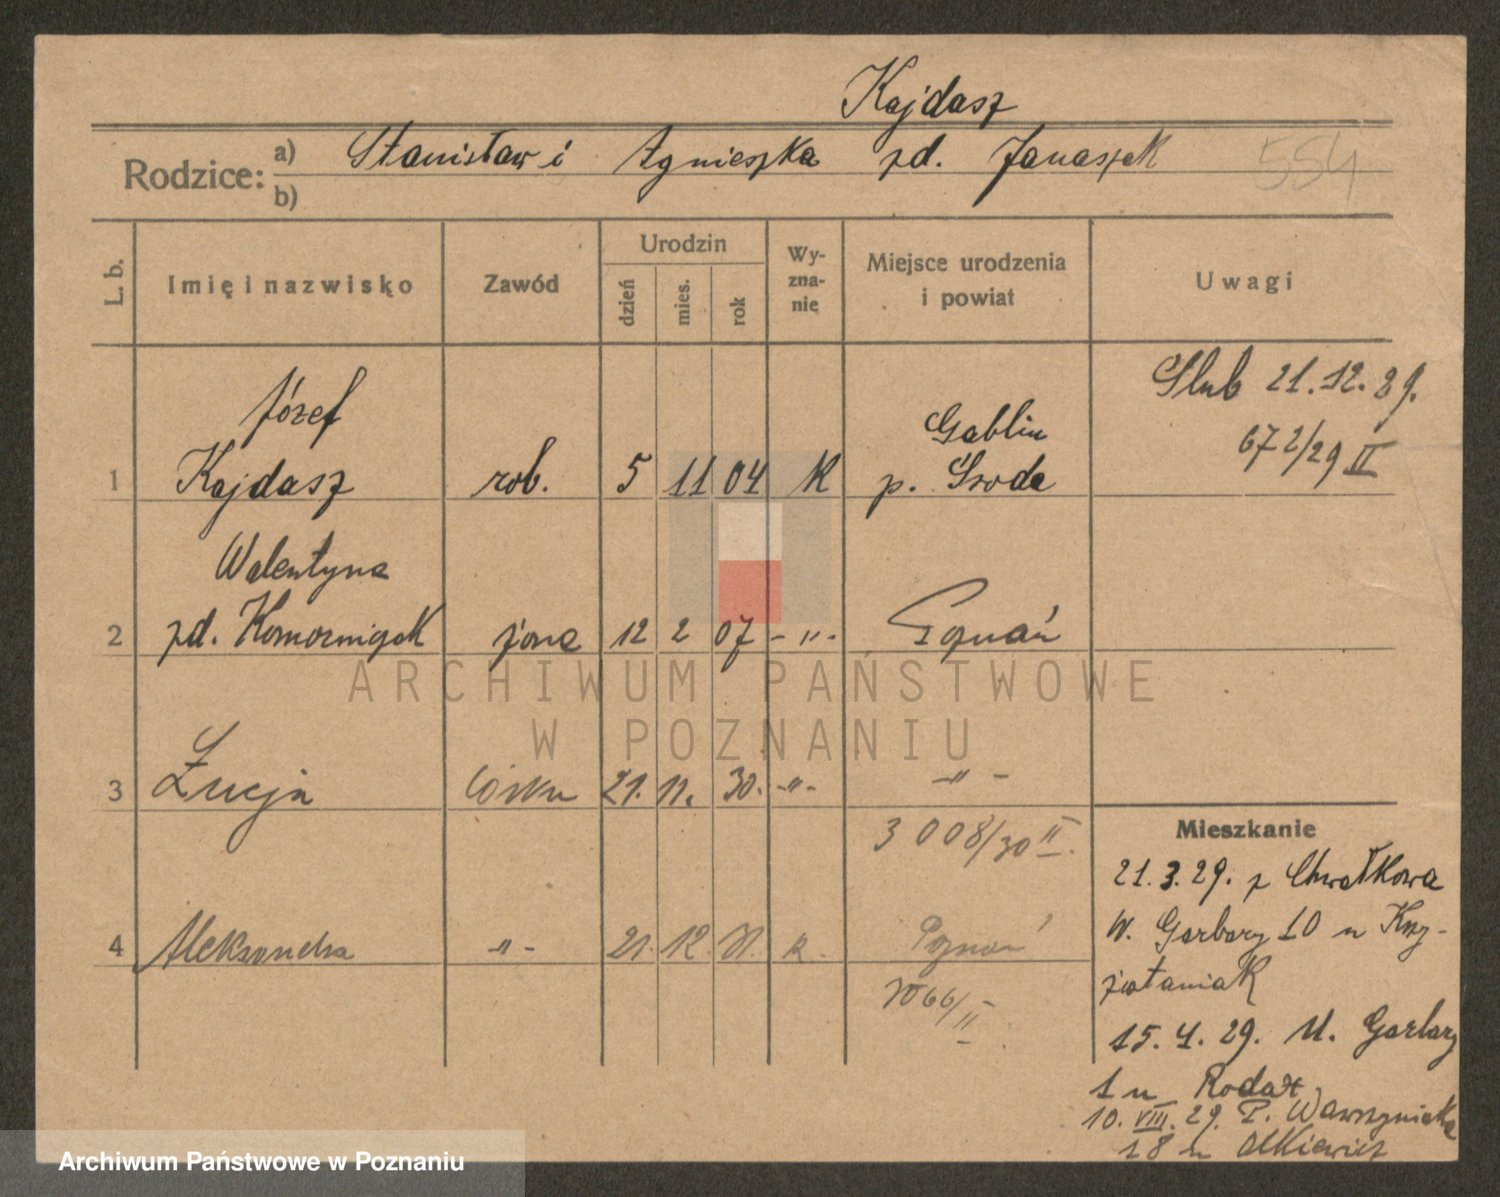 Kajdasz
Rodzice: a) Stanisław i Agnieszka zd. Janaszek
b)
554
L. b.
Imię i nazwisko
Zawód
Urodzin
dzień
mies.
rok
Wy-
zna-
nie
Miejsce urodzenia
i powiat
Uwagi
Józef
1 Kajdasz rob. 5 11 04 K
Gablin
p. Środa
Ślub 21.12.29.
672/29 II
Walentyna
2 zd. Komorniczak żona 12 2 07 - " - Poznań
3 Łucja córka 21. 11. 30. - " - - " -
3008/30 II.
4 Aleksandra - " - 21. 12. 31. k. Poznań
/II
Mieszkanie
21.3.29. z Chwałkowa
W. Garbary 10 u Krzy-
żostaniak
15.4.29. M. Garbary
1 u Rodak
10.VIII.29. P. Wawrzyniaka
18 u Olkiewicz
ARCHIWUM PAŃSTWOWE
W POZNANIU
Archiwum Państwowe w Poznaniu